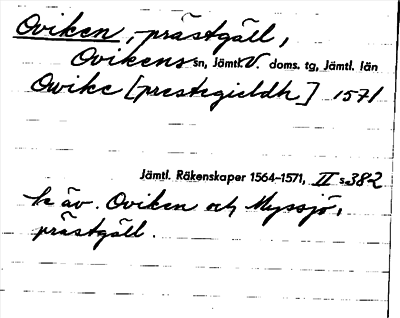 Oviken, prästgäll,
Ovikens sn, Jämtl. V. doms. tg, Jämtl. län
Owike [prestegieldh] 1571
Jämtl. Räkenskaper 1564–1571, II s. 382
h äv. Oviken och Myssjö,
prästgäll.